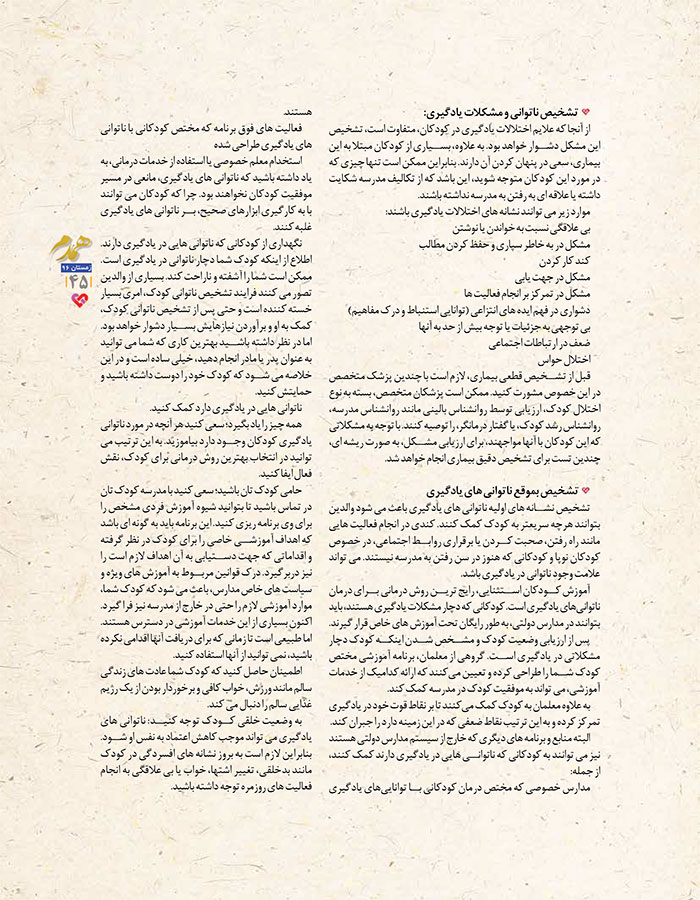 تشخیص ناتوانی و مشکلات یادگیری:
از آنجا که علایم اختلالات یادگیری در کودکان، متفاوت است، تشخیص
این مشکل دشوار خواهد بود. به علاوه، بسیاری از کودکان مبتلا به این
بیماری، سعی در پنهان کردن آن دارند. بنابراین ممکن است تنها چیزی که
در مورد این کودکان متوجه شوید، این باشد که از تکالیف مدرسه شکایت
داشته یا علاقه ای به رفتن به مدرسه نداشته باشند.
موارد زیر می توانند نشانه های اختلالات یادگیری باشند:
بی علاقگی نسبت به خواندن یا نوشتن
مشکل در به خاطر سپاری و حفظ کردن مطالب
کند کار کردن
مشکل در جهت یابی
مشکل در تمرکز بر انجام فعالیت ها
دشواری در فهم ایده های انتزاعی (توانایی استنباط و درک مفاهیم)
بی توجهی به جزئیات یا توجه بیش از حد به آنها
ضعف در ارتباطات اجتماعی
اختلال حواس
قبل از تشخیص قطعی بیماری، لازم است با چندین پزشک متخصص
در این خصوص مشورت کنید. ممکن است پزشکان متخصص، بسته به نوع
اختلال کودک، ارزیابی توسط روانشناس بالینی مانند روانشناس مدرسه،
روانشناس رشد کودک، یا گفتار درمانگر، را توصیه کنند. با توجه به مشکلاتی
که این کودکان با آنها مواجهند، برای ارزیابی مشکل، به صورت ریشه ای،
چندین تست برای تشخیص دقیق بیماری انجام خواهد شد.
تشخیص بموقع ناتوانی های یادگیری
تشخیص نشانه های اولیه ناتوانی های یادگیری باعث می شود والدین
بتوانند هرچه سریعتر به کودک کمک کنند. کندی در انجام فعالیت هایی
مانند راه رفتن، صحبت کردن یا برقراری روابط اجتماعی، در خصوص
کودکان نوپا و کودکانی که هنوز در سن رفتن به مدرسه نیستند. می تواند
علامت وجود ناتوانی در یادگیری باشد.
آموزش کودکان استثنایی، رایج ترین روش درمانی برای درمان
ناتوانی‌های یادگیری است. کودکانی که دچار مشکلات یادگیری هستند، باید
بتوانند در مدارس دولتی، به طور رایگان تحت آموزش های خاص قرار گیرند.
پس از ارزیابی وضعیت کودک و مشخص شدن اینکه کودک دچار
مشکلاتی در یادگیری است. گروهی از معلمان، برنامه آموزشی مختص
کودک شما را طراحی کرده و تعیین می کنند که ارائه کدامیک از خدمات
آموزشی، می تواند به موفقیت کودک در مدرسه کمک کند.
به علاوه معلمان به کودک کمک می کنند تا بر نقاط قوت خود در یادگیری
تمرکز کرده و به این ترتیب نقاط ضعفی که در این زمینه دارد را جبران کند.
البته منابع و برنامه های دیگری که خارج از سیستم مدارس دولتی هستند
نیز می توانند به کودکانی که ناتوانی هایی در یادگیری دارند کمک کنند،
از جمله:
مدارس خصوصی که مختص درمان کودکانی با توانایی‌های یادگیری
هستند.
فعالیت های فوق برنامه که مختص کودکانی با ناتوانی
های یادگیری طراحی شده
استخدام معلم خصوصی یا استفاده از خدمات درمانی، به
یاد داشته باشید که ناتوانی های یادگیری، مانعی در مسیر
موفقیت کودکان نخواهند بود. چرا که کودکان می توانند
با به کارگیری ابزارهای صحیح، بر ناتوانی های یادگیری
غلبه کنند.
نگهداری از کودکانی که ناتوانی هایی در یادگیری دارند.
اطلاع از اینکه کودک شما دچار ناتوانی در یادگیری است.
ممکن است شما را آشفته و ناراحت کند. بسیاری از والدین
تصور می کنند فرایند تشخیص ناتوانی کودک، امری بسیار
خسته کننده است و حتی پس از تشخیص ناتوانی کودک،
کمک به او و برآوردن نیازهایش بسیار دشوار خواهد بود.
اما در نظر داشته باشید بهترین کاری که شما می توانید
به عنوان پدر یا مادر انجام دهید، خیلی ساده است و در این
خلاصه می شود که کودک خود را دوست داشته باشید و
حمایتش کنید.
ناتوانی هایی در یادگیری دارد کمک کنید.
همه چیز را یاد بگیرد؛ سعی کنید هر آنچه در مورد ناتوانی
یادگیری کودکان وجود دارد بیاموزید. به این ترتیب می
توانید در انتخاب بهترین روش درمانی برای کودک، نقش
فعال ایفا کنید.
حامی کودک تان باشید؛ سعی کنید با مدرسه کودک تان
در تماس باشید تا بتوانید شیوه آموزش فردی مشخص را
برای وی برنامه ریزی کنید. این برنامه باید به گونه ای باشد
که اهداف آموزشی خاصی را برای کودک در نظر گرفته
و اقداماتی که جهت دستیابی به آن اهداف لازم است را
نیز دربر گیرد. درک قوانین مربوط به آموزش های ویژه و
سیاست های خاص مدارس، باعث می شود که کودک شما،
موارد آموزشی لازم را حتی در خارج از مدرسه نیز فرا گیرد.
اکنون بسیاری از این خدمات آموزشی در دسترس هستند.
اما طبیعی است تا زمانی که برای دریافت آنها اقدامی نکرده
باشید، نمی توانید از آنها استفاده کنید.
اطمینان حاصل کنید که کودک شما عادت های زندگی
سالم مانند ورزش، خواب کافی و برخوردار بودن از یک رژیم
غذایی سالم را دنبال می کند.
به وضعیت خلقی کودک توجه کنید: ناتوانی های
یادگیری می تواند موجب کاهش اعتماد به نفس او شود.
بنابراین لازم است به بروز نشانه های افسردگی در کودک
مانند بدخلقی، تغییر اشتها، خواب یا بی علاقگی به انجام
فعالیت های روزمره توجه داشته باشید.
همدم
زمستان ۹۶
۴۵